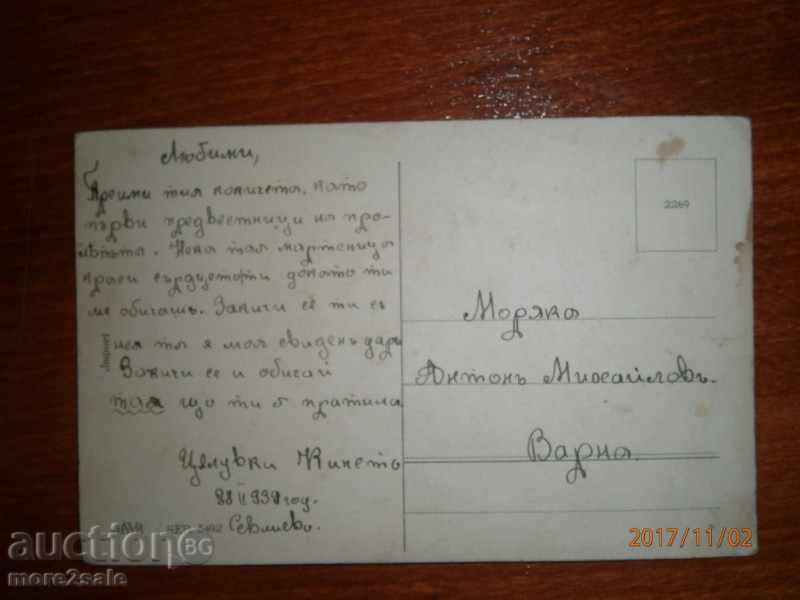 Любими,
Приими тия кокичета, като
първи предвестници на про-
лѣтьта. Нека тая мартеница
краси сърдцето ти докато ти
ме обичашъ. Закичи се ти съ
нея тя я моя свиденъ даръ
Закичи се и обичай
тая що ти я пратила
Цѣлувки Кинето
28 II 939 год.
Севлиево.
2269
Моряка
Антонъ Михайловъ.
Варна
SER
auction BG
more2sale
2017/11/02